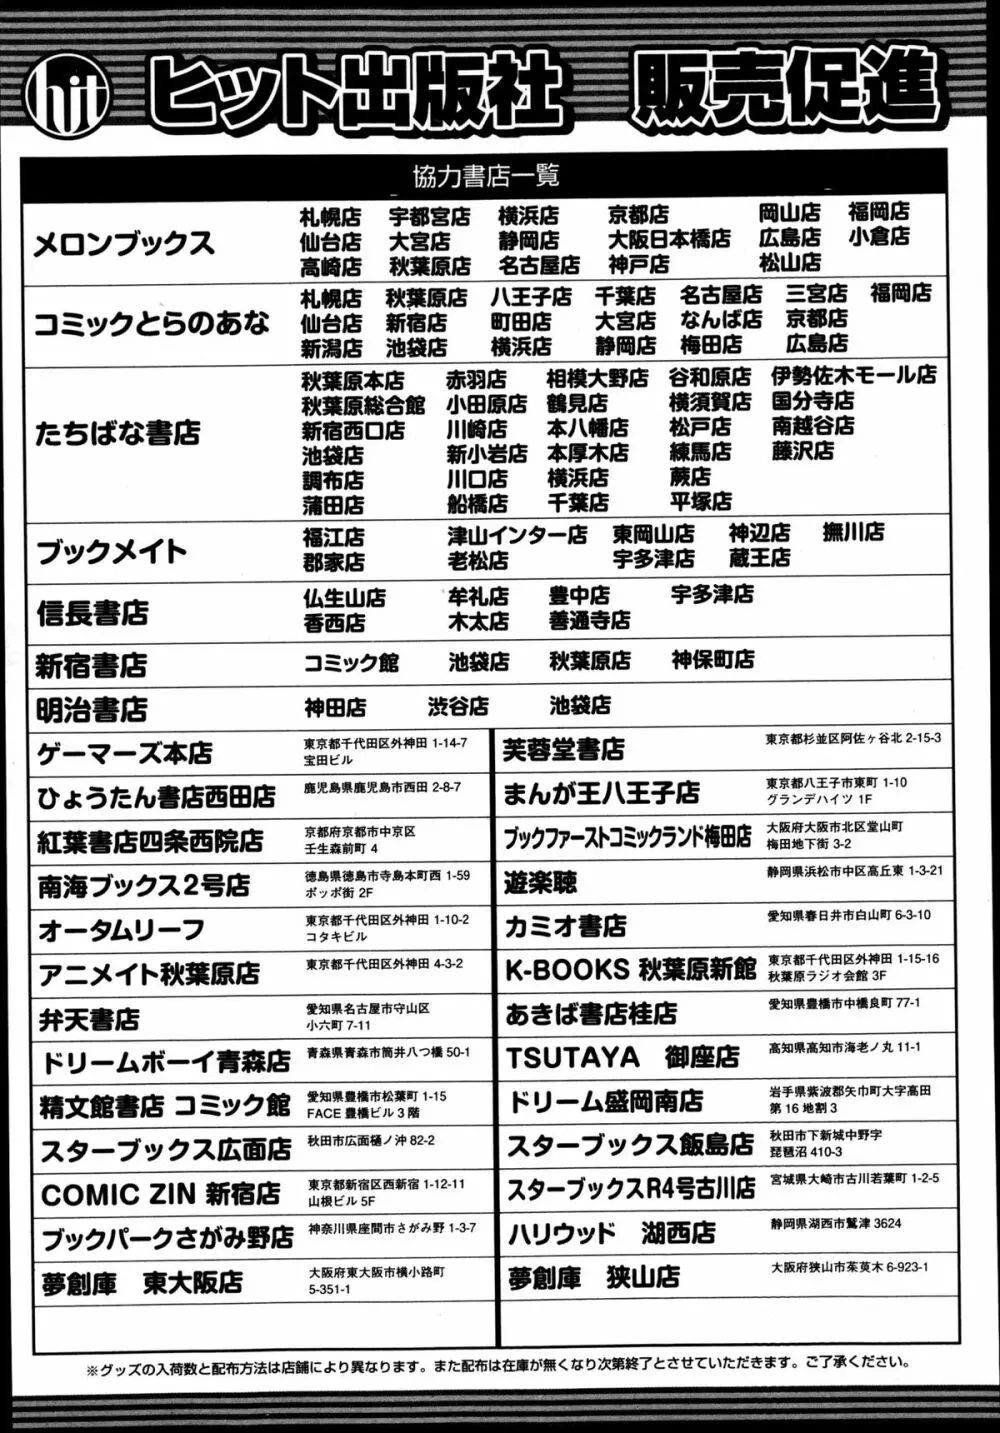 hit ヒット出版社 販売促進
協力書店一覧
メロンブックス
札幌店 宇都宮店 横浜店 京都店 岡山店 福岡店
仙台店 大宮店 静岡店 大阪日本橋店 広島店 小倉店
高崎店 秋葉原店 名古屋店 神戸店 松山店
コミックとらのあな
札幌店 秋葉原店 八王子店 千葉店 名古屋店 三宮店 福岡店
仙台店 新宿店 町田店 大宮店 なんば店 京都店
新潟店 池袋店 横浜店 静岡店 梅田店 広島店
たちばな書店
秋葉原本店 赤羽店 相模大野店 谷和原店 伊勢佐木モール店
秋葉原総合館 小田原店 鶴見店 横須賀店 国分寺店
新宿西口店 川崎店 本八幡店 松戸店 南越谷店
池袋店 新小岩店 本厚木店 練馬店 藤沢店
調布店 川口店 横浜店 蕨店
蒲田店 船橋店 千葉店 平塚店
ブックメイト
福江店 津山インター店 東岡山店 神辺店 撫川店
郡家店 老松店 宇多津店 蔵王店
信長書店
仏生山店 牟礼店 豊中店 宇多津店
香西店 木太店 善通寺店
新宿書店
コミック館 池袋店 秋葉原店 神保町店
明治書店
神田店 渋谷店 池袋店
ゲーマーズ本店
東京都千代田区外神田 1-14-7
宝田ビル
ひょうたん書店西田店
鹿児島県鹿児島市西田 2-8-7
紅葉書店四条西院店
京都府京都市中京区
壬生森前町 4
南海ブックス2号店
徳島県徳島市寺島本町西 1-59
ポッポ街 2F
オータムリーフ
東京都千代田区外神田 1-10-2
コタキビル
アニメイト秋葉原店
東京都千代田区外神田 4-3-2
弁天書店
愛知県名古屋市守山区
小六町 7-11
ドリームボーイ青森店
青森県青森市筒井八つ橋 50-1
精文館書店 コミック館
愛知県豊橋市松葉町 1-15
FACE 豊橋ビル 3 階
スターブックス広面店
秋田市広面樋ノ沖 82-2
COMIC ZIN 新宿店
東京都新宿区西新宿 1-12-11
山根ビル 5F
ブックパークさがみ野店
神奈川県座間市さがみ野 1-3-7
夢創庫 東大阪店
大阪府東大阪市横小路町
5-351-1
芙蓉堂書店
東京都杉並区阿佐ヶ谷北 2-15-3
まんが王八王子店
東京都八王子市東町 1-10
グランデハイツ 1F
ブックファーストコミックランド梅田店
大阪府大阪市北区堂山町
梅田地下街 3-2
遊楽聴
静岡県浜松市中区高丘東 1-3-21
カミオ書店
愛知県春日井市白山町 6-3-10
K-BOOKS 秋葉原新館
東京都千代田区外神田 1-15-16
秋葉原ラジオ会館 3F
あきば書店桂店
愛知県豊橋市中橋良町 77-1
TSUTAYA 御座店
高知県高知市海老ノ丸 11-1
ドリーム盛岡南店
岩手県紫波郡矢巾町大字高田
第 16 地割 3
スターブックス飯島店
秋田市下新城中野字
琵琶沼 410-3
スターブックスR4号古川店
宮城県大崎市古川若葉町 1-2-5
ハリウッド 湖西店
静岡県湖西市鷲津 3624
夢創庫 狭山店
大阪府狭山市茱萸木 6-923-1
※グッズの入荷数と配布方法は店舗により異なります。また配布は在庫が無くなり次第終了とさせていただきます。ご了承ください。